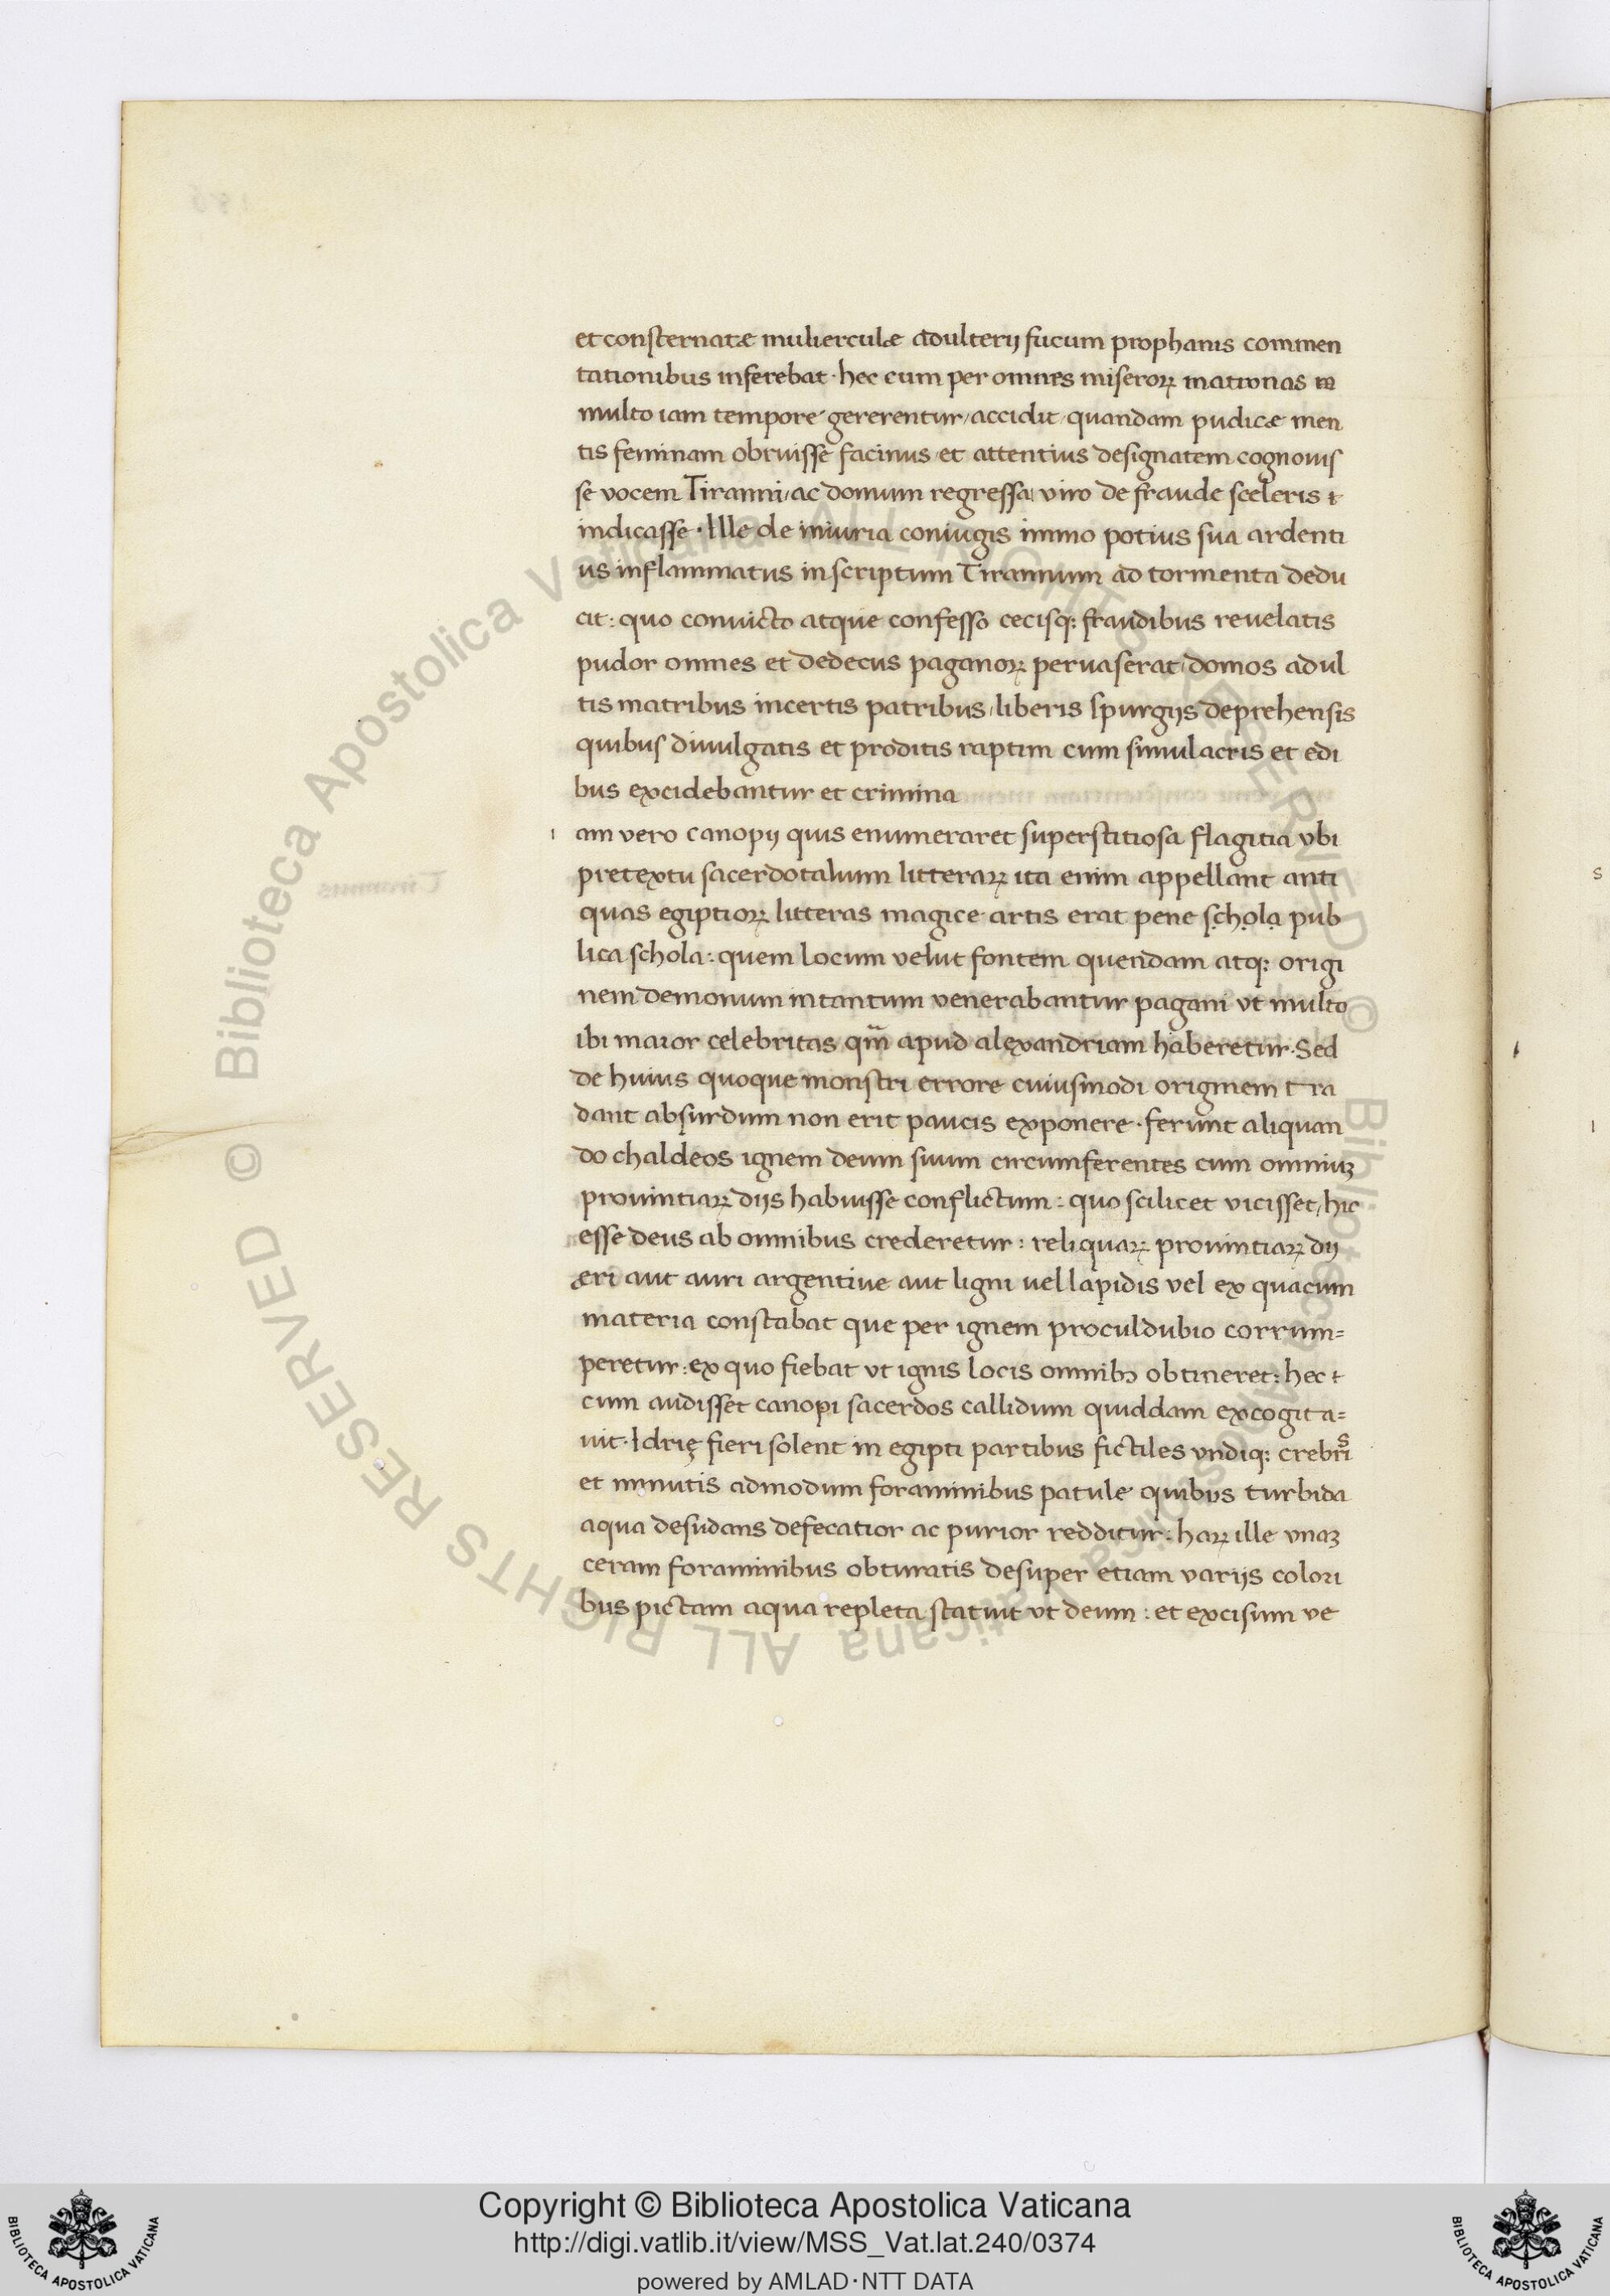 et consternatæ mulierculæ adulterij fucum prophanis commen
tationibus inferebat · hec cum per omnes miseroꝝ matronas
multo iam tempore gererentur / accidit / quandam pudicæ men
tis feminam obruisse facinus et attentius designatem cognouis
se vocem Tiranni / ac domum regressa viro de fraude sceleris
indicasse · Ille de iniuria coniugis immo potius sua ardenti
us inflammatus in scriptum Tirannum ad tormenta dedu
cit : quo conuicto atque confesso cecisq; fraudibus reuelatis
pudor omnes et dedecus paganoꝝ peruaserat / domos adul
tis matribus incertis patribus / liberis spurgijs deprehensis
quibus diuulgatis et proditis raptim cum simulacris et edi
bus excidebantur et crimina
i am vero canopij quis enumeraret superstitiosa flagitia vbi
pretextu sacerdotalium litteraꝝ ita enim appellant anti
quas egiptioꝝ litteras magice artis erat pene schola pub
lica schola : quem locum velut fontem quendam atq; origi
nem demonum intantum venerabantur pagani vt multo
ibi maior celebritas qm̄ apud alexandriam haberetur · Sed
de huius quoque monstri errore cuiusmodi originem tra
dant absurdum non erit paucis exponere · ferunt aliquan
do chaldeos ignem deum suum circumferentes cum omniuꝫ
prouintiaꝝ dijs habuisse conflictum : quo scilicet vicisset / hic
esse deus ab omnibus crederetur : reliquaꝝ prouintiaꝝ dij
æri aut auri argentiue aut ligni uel lapidis vel ex quacum
materia constabat que per ignem proculdubio corrum=
peretur : ex quo fiebat vt ignis locis omnibꝫ obtineret : hec
cum audisset canopi sacerdos callidum quiddam excogita=
uit · Idrię fieri solent in egipti partibus fictiles vndiq; crebris
et minutis admodum foraminibus patule quibus turbida
aqua desudans defecatior ac purior redditur : haꝝ ille vnaꝫ
ceram foraminibus obturatis desuper etiam varijs colori
bus pictam aqua repleta statuit vt deum : et excisum ve
Copyright © Biblioteca Apostolica Vaticana
http://digi.vatlib.it/view/MSS_Vat.lat.240/0374
powered by AMLAD·NTT DATA
BIBLIOTECA APOSTOLICA VATICANA
BIBLIOTECA APOSTOLICA VATICANA
© Biblioteca Apostolica Vaticana ALL RIGHTS RESERVED © Biblioteca Apostolica Vaticana ALL RIGHTS RESERVED